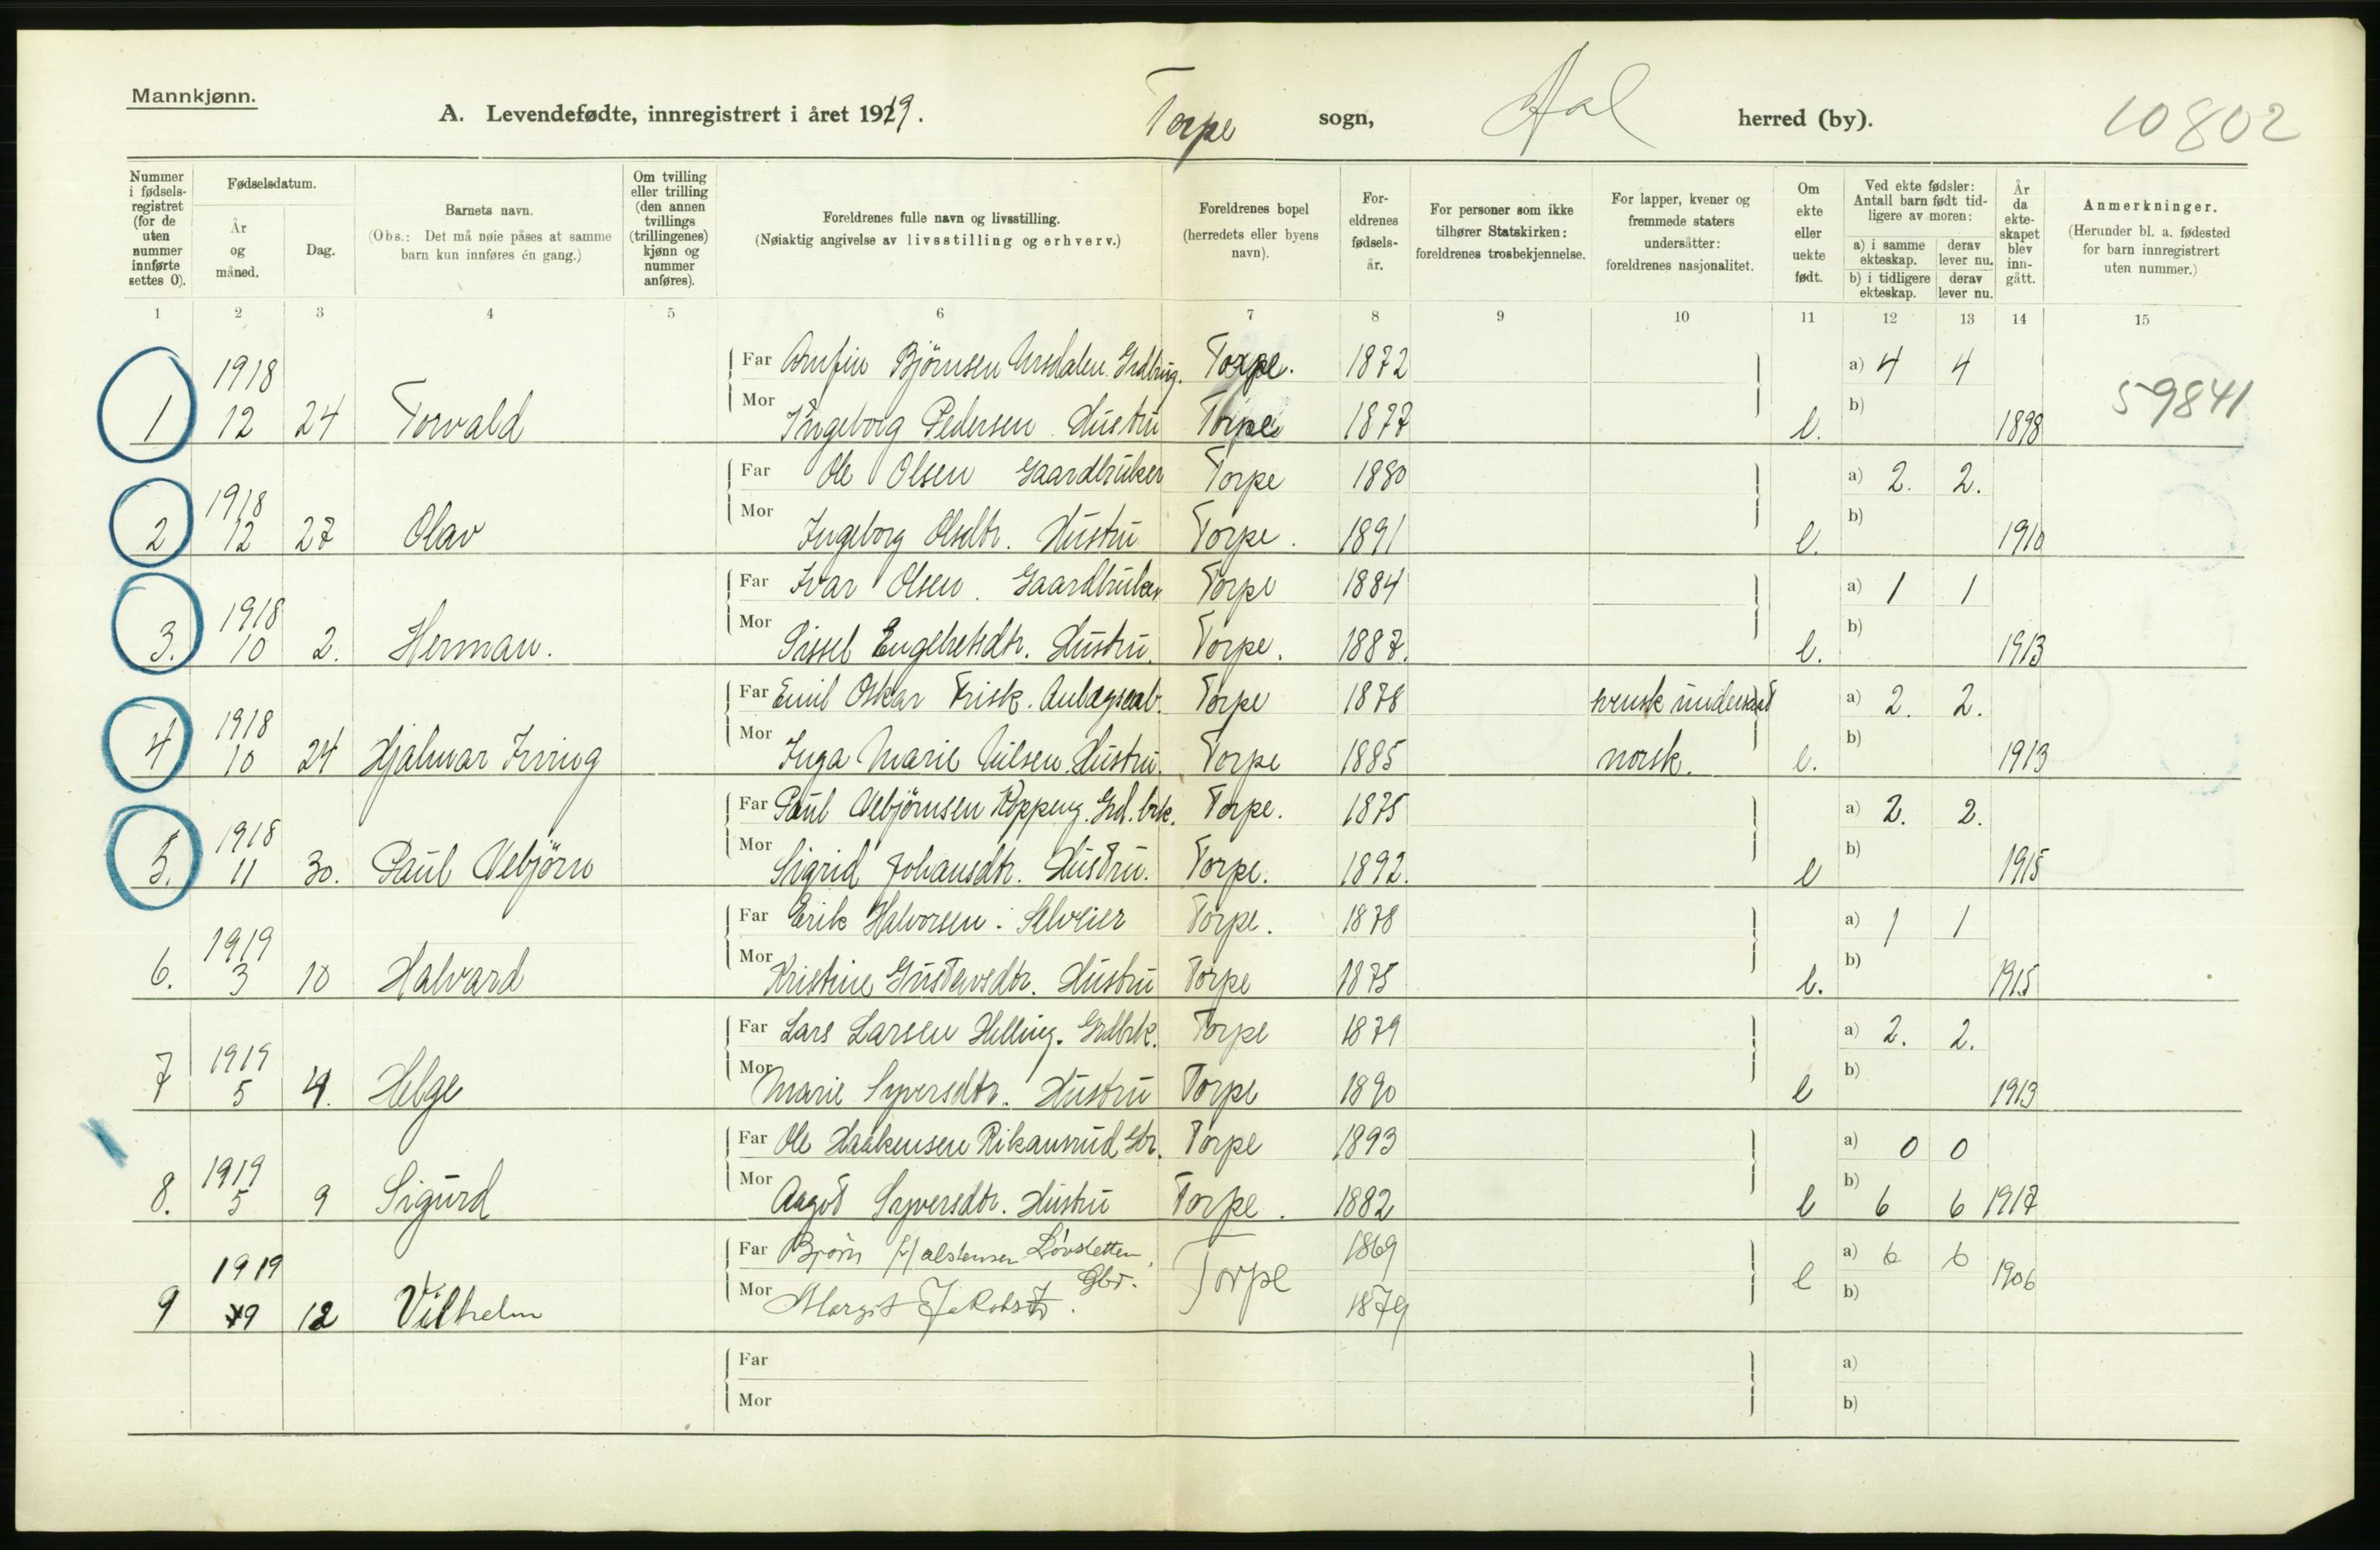 Mannkjønn.
A. Levendefødte, innregistrert i året 1919. Torpe sogn, Aal herred (by). 10802
Nummer i fødsels-registret (for de uten nummer innførte settes 0).
Fødselsdatum.
År og måned.
Dag.
Barnets navn.
(Obs.: Det må nøie påses at samme barn kun innføres én gang.)
Om tvilling eller trilling (den annen tvillings (trillingenes) kjønn og nummer anføres).
Foreldrenes fulle navn og livsstilling.
(Nøiaktig angivelse av livsstilling og erhverv.)
Foreldrenes bopel (herredets eller byens navn).
For-eldrenes fødsels-år.
For personer som ikke tilhører Statskirken: foreldrenes trosbekjennelse.
For lapper, kvener og fremmede staters undersåtter: foreldrenes nasjonalitet.
Om ekte eller uekte født.
Ved ekte fødsler: Antall barn født tid-ligere av moren:
a) i samme ekteskap. derav lever nu.
b) i tidligere ekteskap. derav lever nu.
År da ekte-skapet blev inn-gått.
Anmerkninger.
(Herunder bl. a. fødested for barn innregistrert uten nummer.)
1 2 3 4 5 6 7 8 9 10 11 12 13 14 15
Far Arnfin Bjørnsen Grdbrug. Torpe. 1872 a) 4 4
1 1918 12 24 Torvald Mor Ingeborg Pedersen Hustru Torpe 1877 e. b) 1898 59841
Far Ole Olsen Gaardbruker Torpe 1880 a) 2. 2.
2 1918 12 27 Olav Mor Ingeborg Olsdtr. Hustru Torpe. 1891 e. b) 1910
Far Ivar Olsen. Gaardbruker Torpe 1884 a) 1 1
3. 1918 10 2. Herman. Mor Sissel Engebretsdtr. Hustru. Torpe. 1887. e. b) 1913
Far Emil Oskar Frisk. Anlægsarb. Torpe 1878 svensk undersaat a) 2. 2.
4 1918 10 24 Hjalmar Irving Mor Inga Marie Nilsen. Hustru. Torpe 1885 norsk. e. b) 1913
Far Paul Vebjørnsen Koppeng. Grd.brk. Torpe. 1875 a) 2. 2.
5. 1918 11 30. Paul Vebjørn Mor Sigrid Johansdtr. Hustru. Torpe. 1892. e b) 1915
Far Erik Halvorsen. Selveier Torpe. 1878 a) 1 1
6. 1919 3 10 Halvard Mor Kristine Gustavsdtr. Hustru Torpe 1875 e. b) 1915
Far Lars Larsen Helling. Grdbrk. Torpe 1879 a) 2. 2.
7 1919 5 4. Helge Mor Marie Syversdtr. Hustru Torpe 1890 e b) 1913
Far Ole Haakensen Rikansrud Gbr. Torpe 1893 a) 0 0
8. 1919 5 9 Sigurd Mor Aagot Syversdtr. Hustru Torpe. 1882 e b) 6 6 1917
Far Bjørn Halstensen Løvsletten, Gbr. Torpe 1869 a) 6 6
9 1919 9 12 Vilhelm Mor Margit Jakobsdtr. 1879 e b) 1906
Far a)
Mor b)